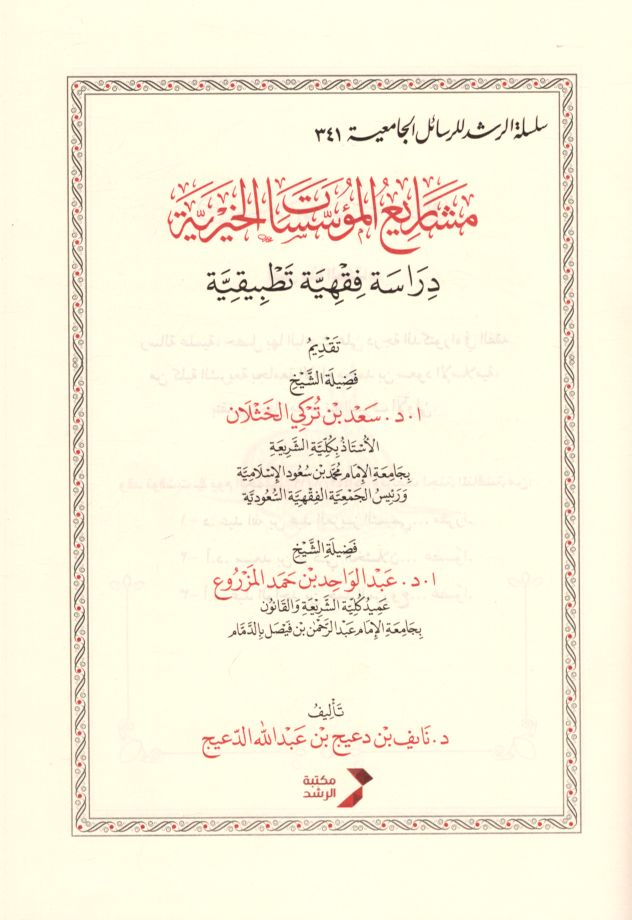 سلسلة الرشد للرسائل الجامعية ٣٤١
مَشَارِيعُ المُؤَسَّسَاتِ الخَيْرِيَّة
دِرَاسَة فِقْهِيَّة تَطْبِيقِيَّة
تَقْدِيمُ
فَضِيلَة الشَّيْخِ
ا.د. سَعد بْن تُرْكِي الخَثْلَان
الأُسْتَاذُ بِكُلِّيَّةِ الشَّرِيعَةِ
بِجَامِعَةِ الإِمَامِ مُحَمَّد بْن سُعُود الإِسْلَامِيَّة
وَرَئِيسُ الجَمْعِيَّةِ الفِقْهِيَّةِ السُّعُودِيَّة
فَضِيلَة الشَّيْخِ
ا.د. عَبْد الوَاحِد بْن حَمَد المَزْرُوع
عَمِيدُ كُلِّيَّة الشَّرِيْعَةِ وَالقَانُون
بِجَامِعَةِ الإِمَام عَبْد الرَّحْمٰن بْن فَيْصَل بِالدَّمَّام
تَأْلِيفُ
د. نَايف بْن دعيج بْن عَبْد اللّٰه الدّعيج
مكتبة
الرشد